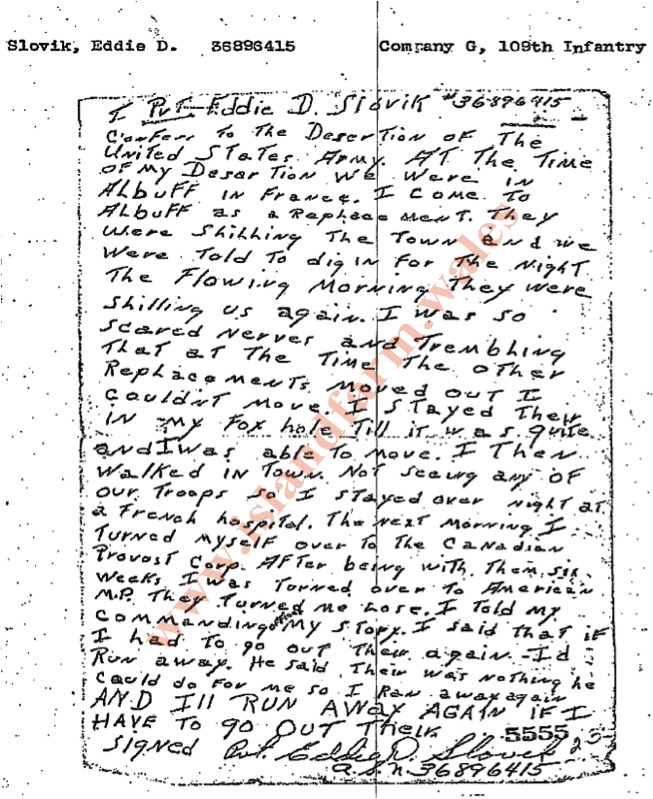 Slovik, Eddie D. 36896415 Company G, 109th Infantry
I Pvt. Eddie D. Slovik #36896415
Confess to the Desertion of the
United States Army. At the time
of my Desartion we were in
Albuff in France. I come to
Albuff as a Replaacement. They
were shilling the town and we
were told to dig in for the night.
The flowing morning they were
shilling us again. I was so
scared nerves and trembling
that at the time the other
Replacements moved out I
couldn't move. I stayed their
in my fox hole till it was quite
and I was able to move. I then
walked in town. Not seeing any of
our troops so I stayed over night at
a French hospital. The next morning I
turned myself over to the Canadian
Provost Corp. After being with them six
weeks I was turned over to American
M.P. They turned me lose. I told my
commanding officer my story. I said that if
I had to go out their again I'd
Run away. He said their was nothing he
could do for me so I ran away again
AND I'll RUN AWAY AGAIN IF I
HAVE TO GO OUT THEIR.
5555
Signed Pvt. Eddie D. Slovik
a.s.n. 36896415
www.islandfarm.wales